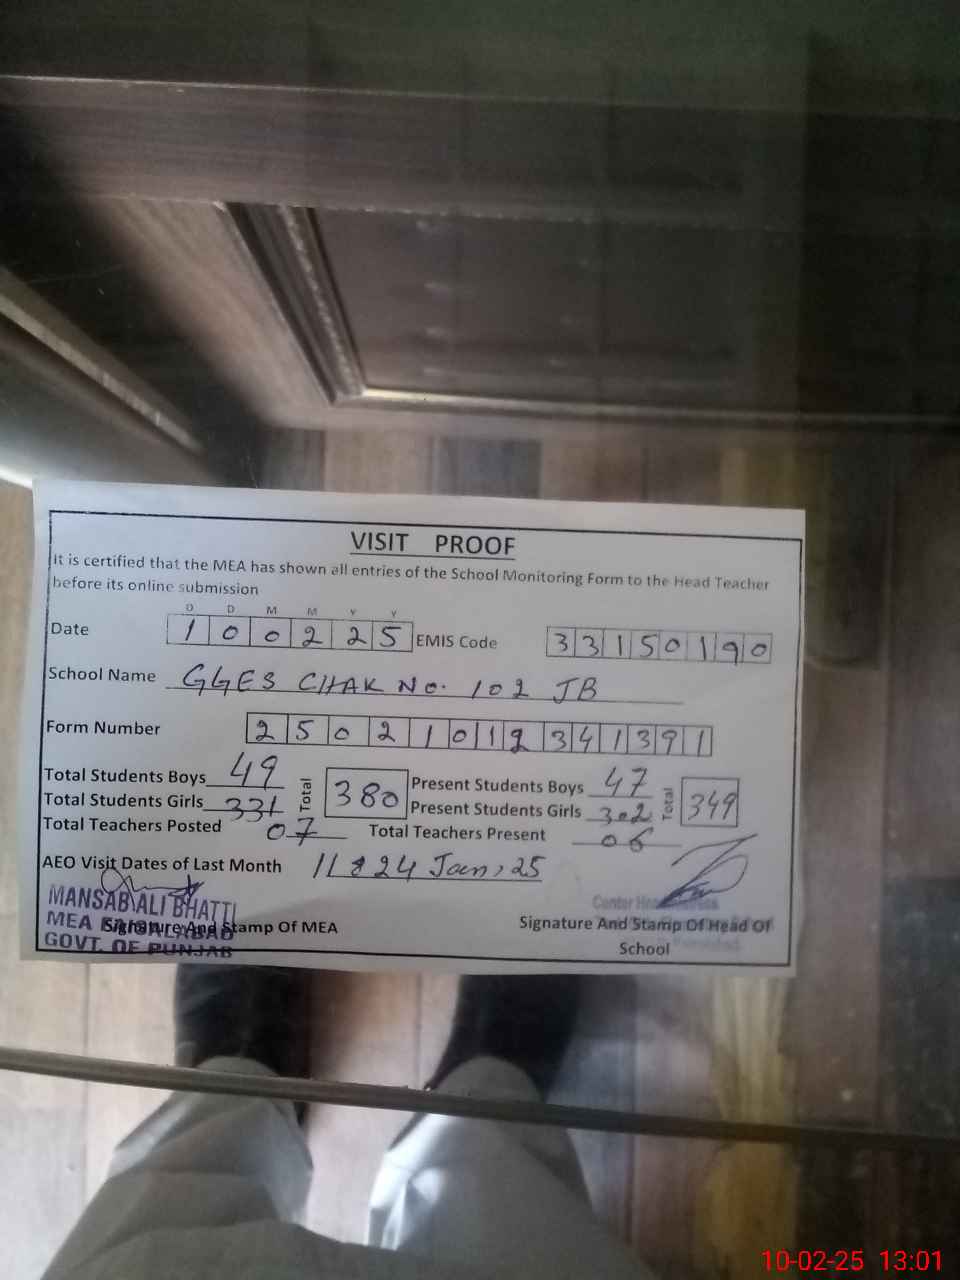 VISIT PROOF
It is certified that the MEA has shown all entries of the School Monitoring Form to the Head Teacher
before its online submission
D D M M Y Y
Date 1 0 0 2 2 5 EMIS Code 3 3 1 5 0 1 9 0
School Name GGES CHAK No. 102 JB
Form Number 2 5 0 2 1 0 1 2 3 4 1 3 9 1
Total Students Boys 49 Total 380 Present Students Boys 47 Total 349
Total Students Girls 331 Present Students Girls 302
Total Teachers Posted 07 Total Teachers Present 06
AEO Visit Dates of Last Month 11 & 24 Jan, 25
MANSAB ALI BHATTI
MEA FAISALABAD
GOVT. OF PUNJAB
Signature And Stamp Of MEA
Center
Signature And Stamp Of Head Of
School
10-02-25 13:01